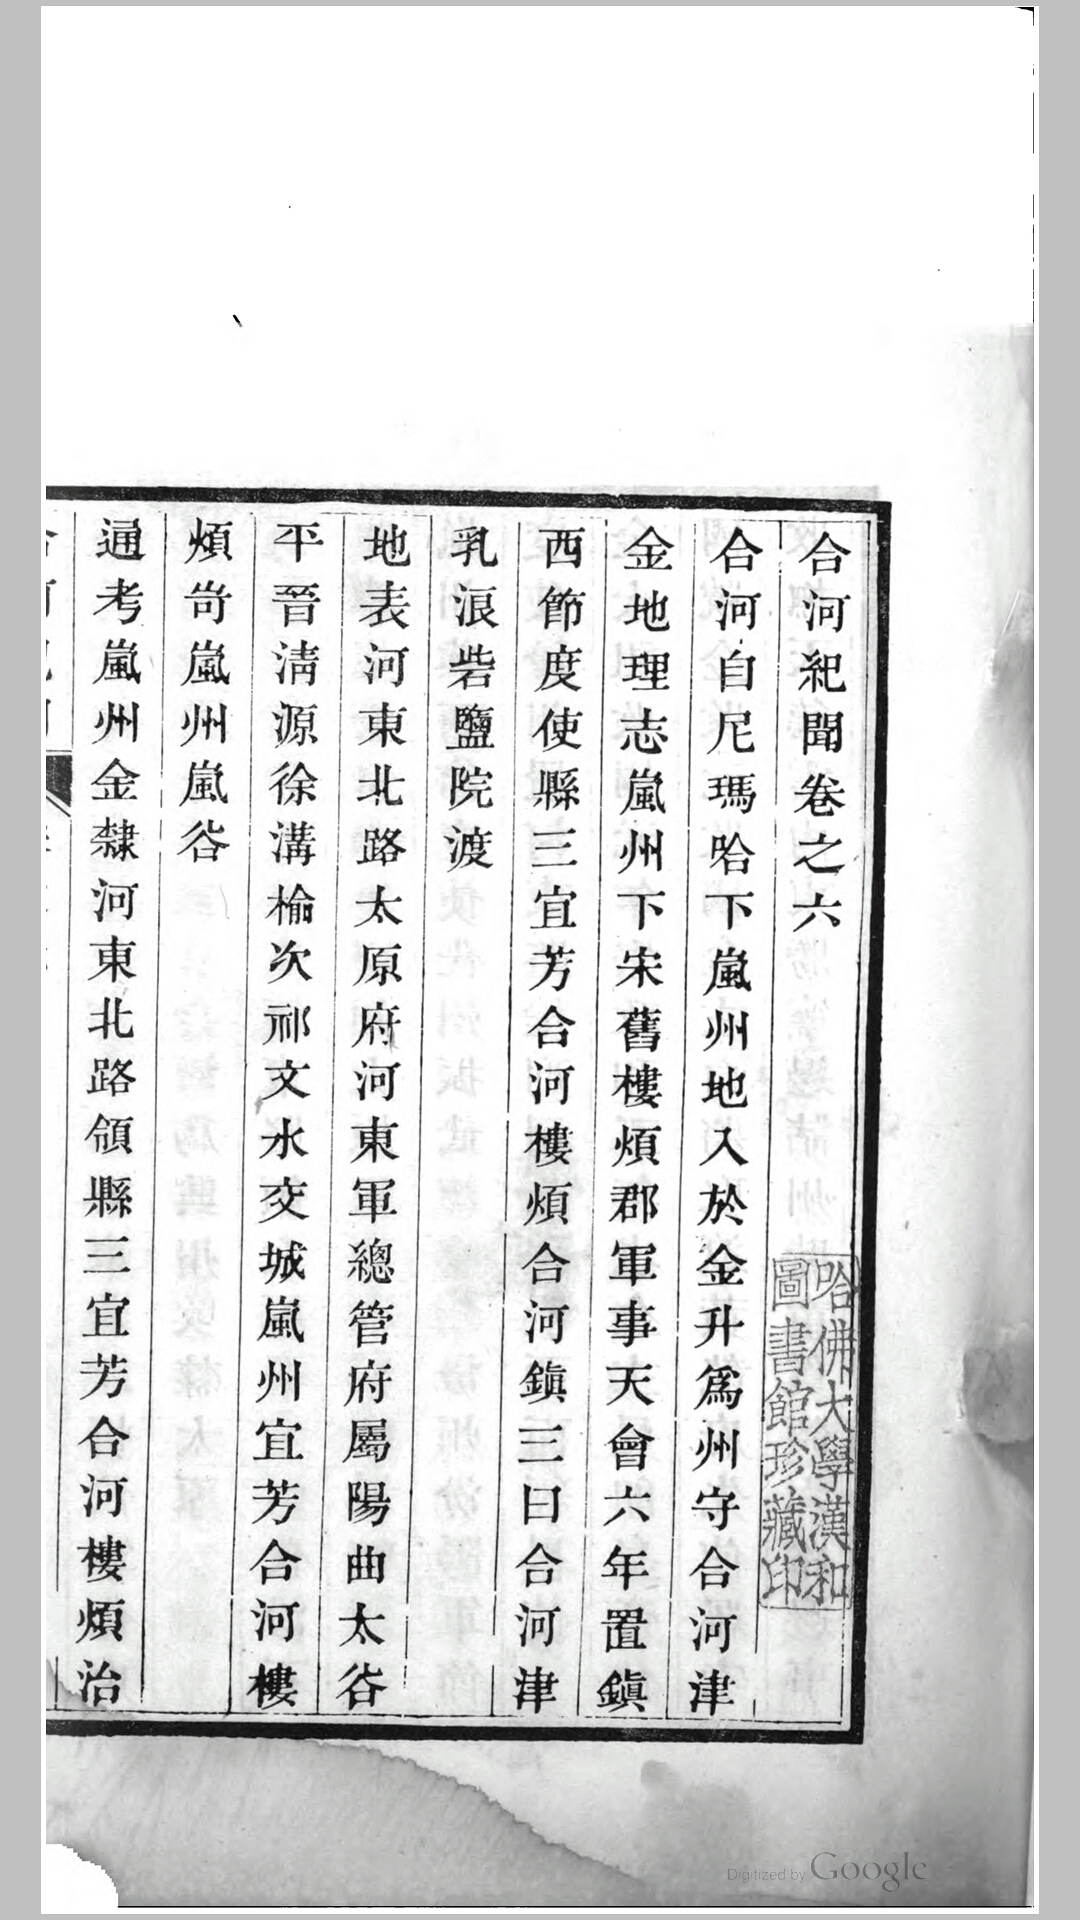 合河紀聞卷之六
合河自尼瑪哈下嵐州地入於金升爲州守合河津
金地理志嵐州下宋舊樓煩郡軍事天會六年置鎮
西節度使縣三宜芳合河樓煩合河鎮三曰合河津
乳浪砦鹽院渡
地表河東北路太原府河東軍總管府屬陽曲太谷
平晉清源徐溝榆次祁文水交城嵐州宜芳合河樓
煩岢嵐州嵐谷
通考嵐州金隸河東北路領縣三宜芳合河樓煩治
哈佛大學漢和
圖書館珍藏印
Digitized by Google